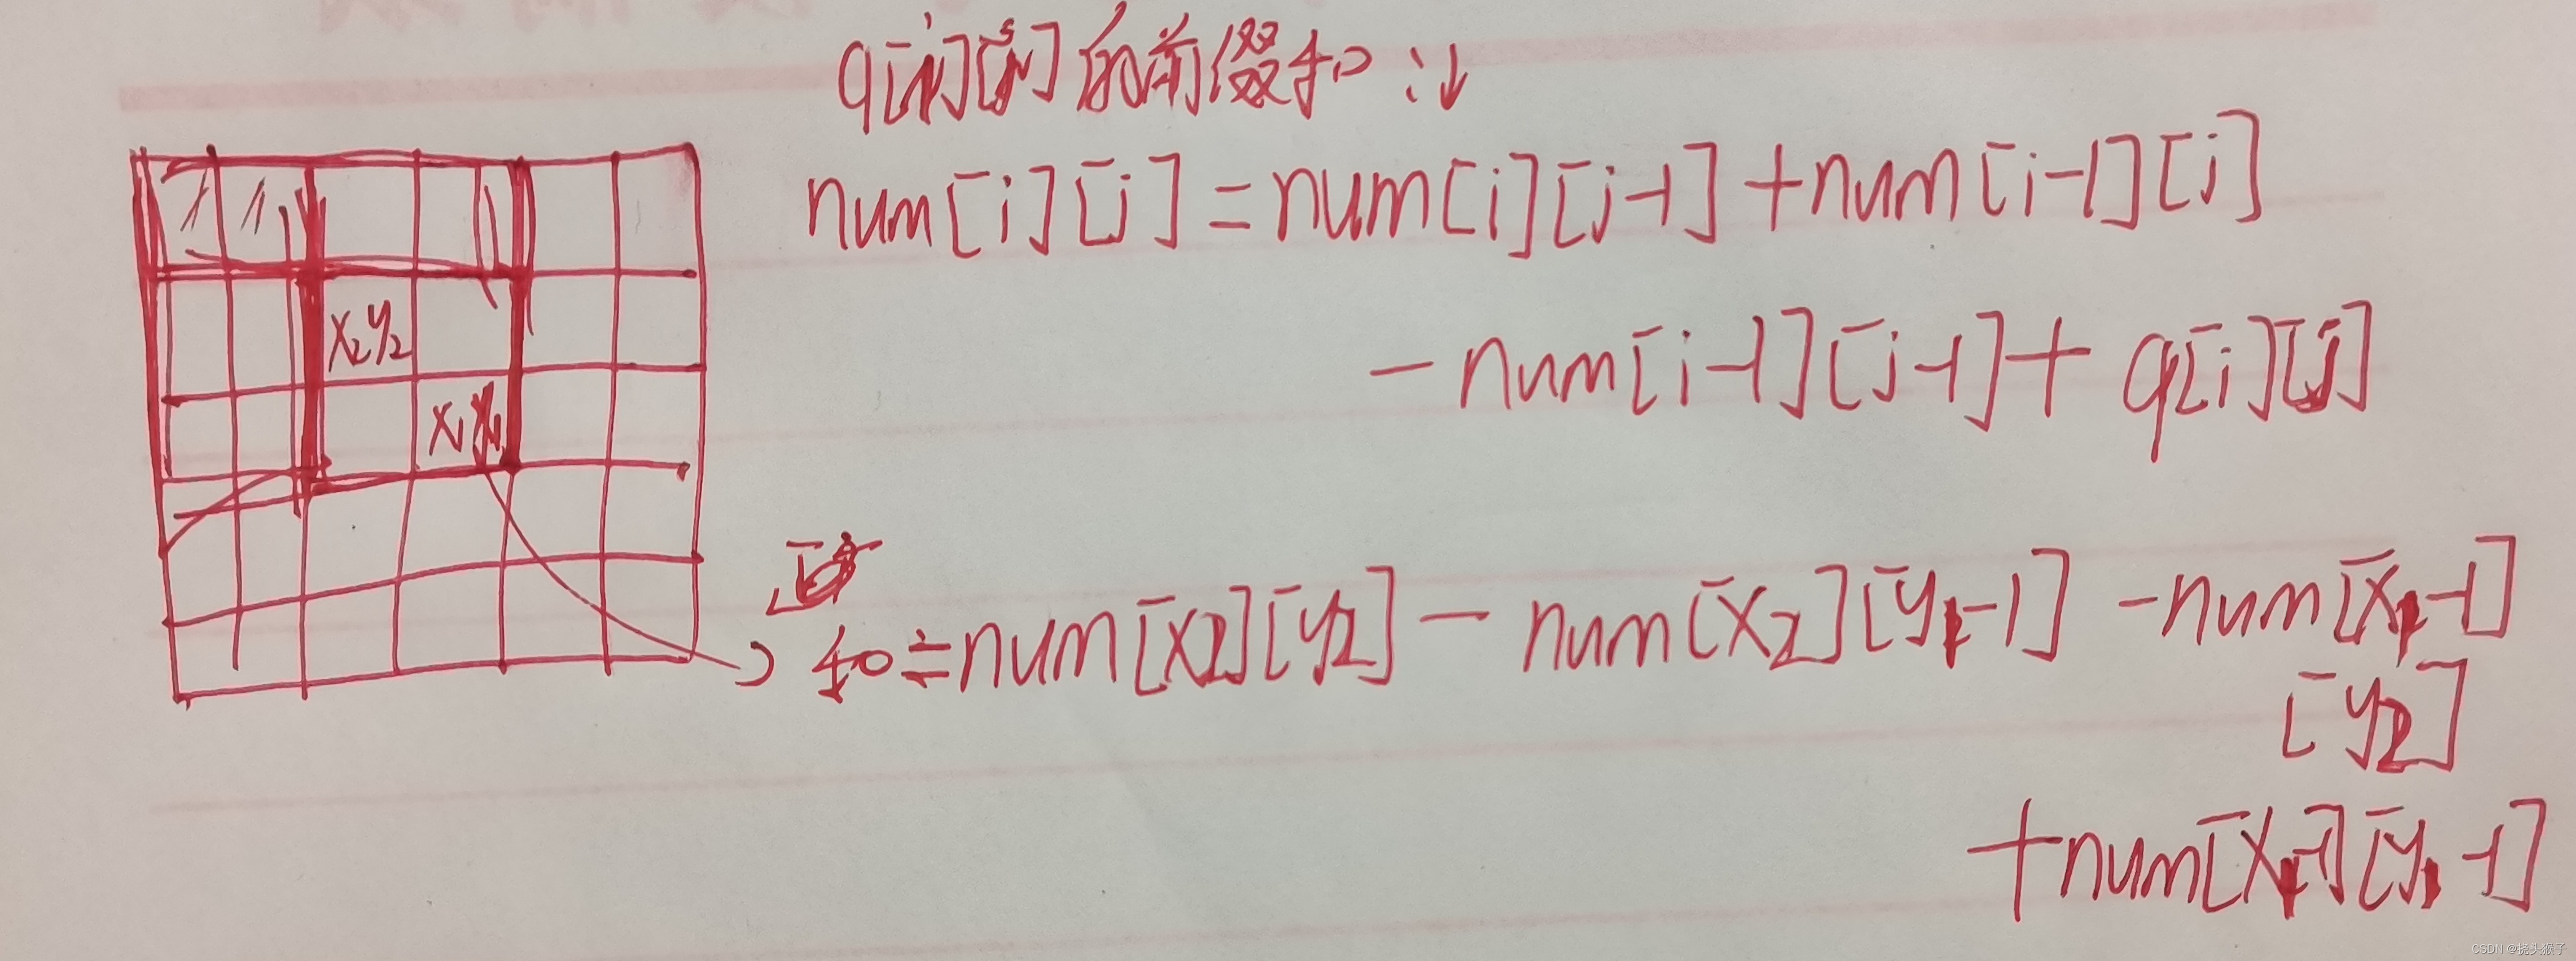 q[i][j]的前缀和:↓
num[i][j]=num[i][j-1]+num[i-1][j]
-num[i-1][j-1]+q[i][j]
x₂y₂
x₁y₁
和=num[x₂][y₂]-num[x₂][y₁-1]-num[x₁-1]
[y₂]
+num[x₁-1][y₁-1]
CSDN @挠头猴子